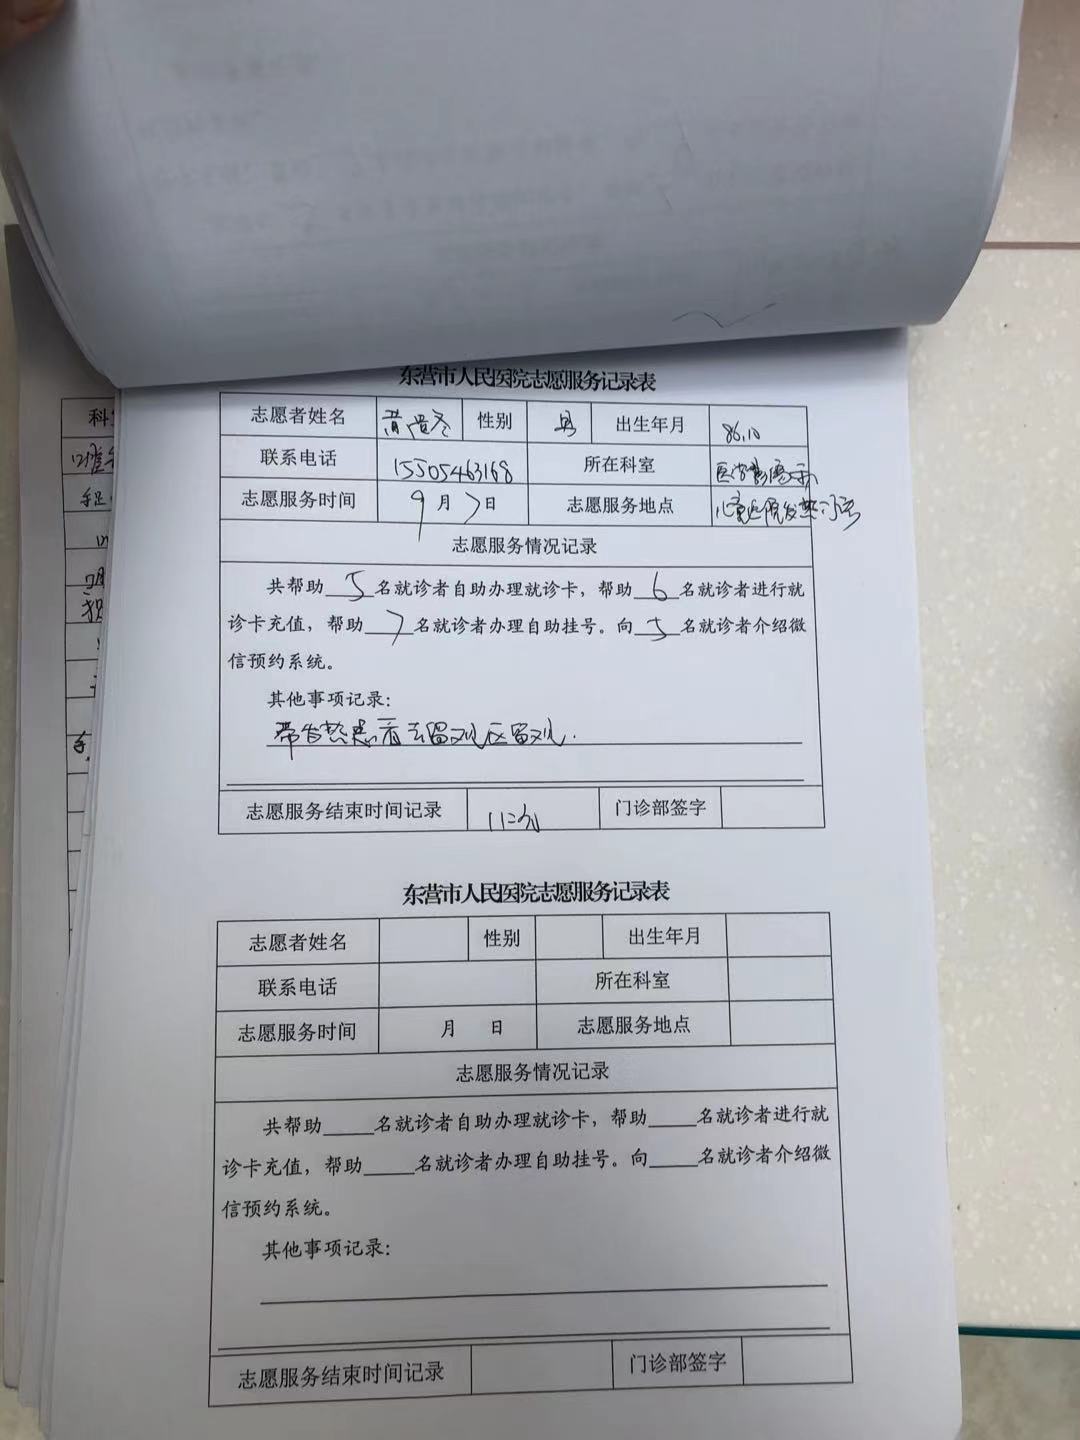 东营市人民医院志愿服务记录表
志愿者姓名 黄 性别 男 出生年月 86.10
联系电话 15505463168 所在科室 医学影像
志愿服务时间 9月7日 志愿服务地点 儿童医院发热门诊
志愿服务情况记录
共帮助5名就诊者自助办理就诊卡，帮助6名就诊者进行就
诊卡充值，帮助7名就诊者办理自助挂号。向5名就诊者介绍微
信预约系统。
其他事项记录：
带发热患者去留观区留观.
志愿服务结束时间记录 门诊部签字
东营市人民医院志愿服务记录表
志愿者姓名 性别 出生年月
联系电话 所在科室
志愿服务时间 月 日 志愿服务地点
志愿服务情况记录
共帮助_____名就诊者自助办理就诊卡，帮助_____名就诊者进行就
诊卡充值，帮助_____名就诊者办理自助挂号。向_____名就诊者介绍微
信预约系统。
其他事项记录：
志愿服务结束时间记录 门诊部签字